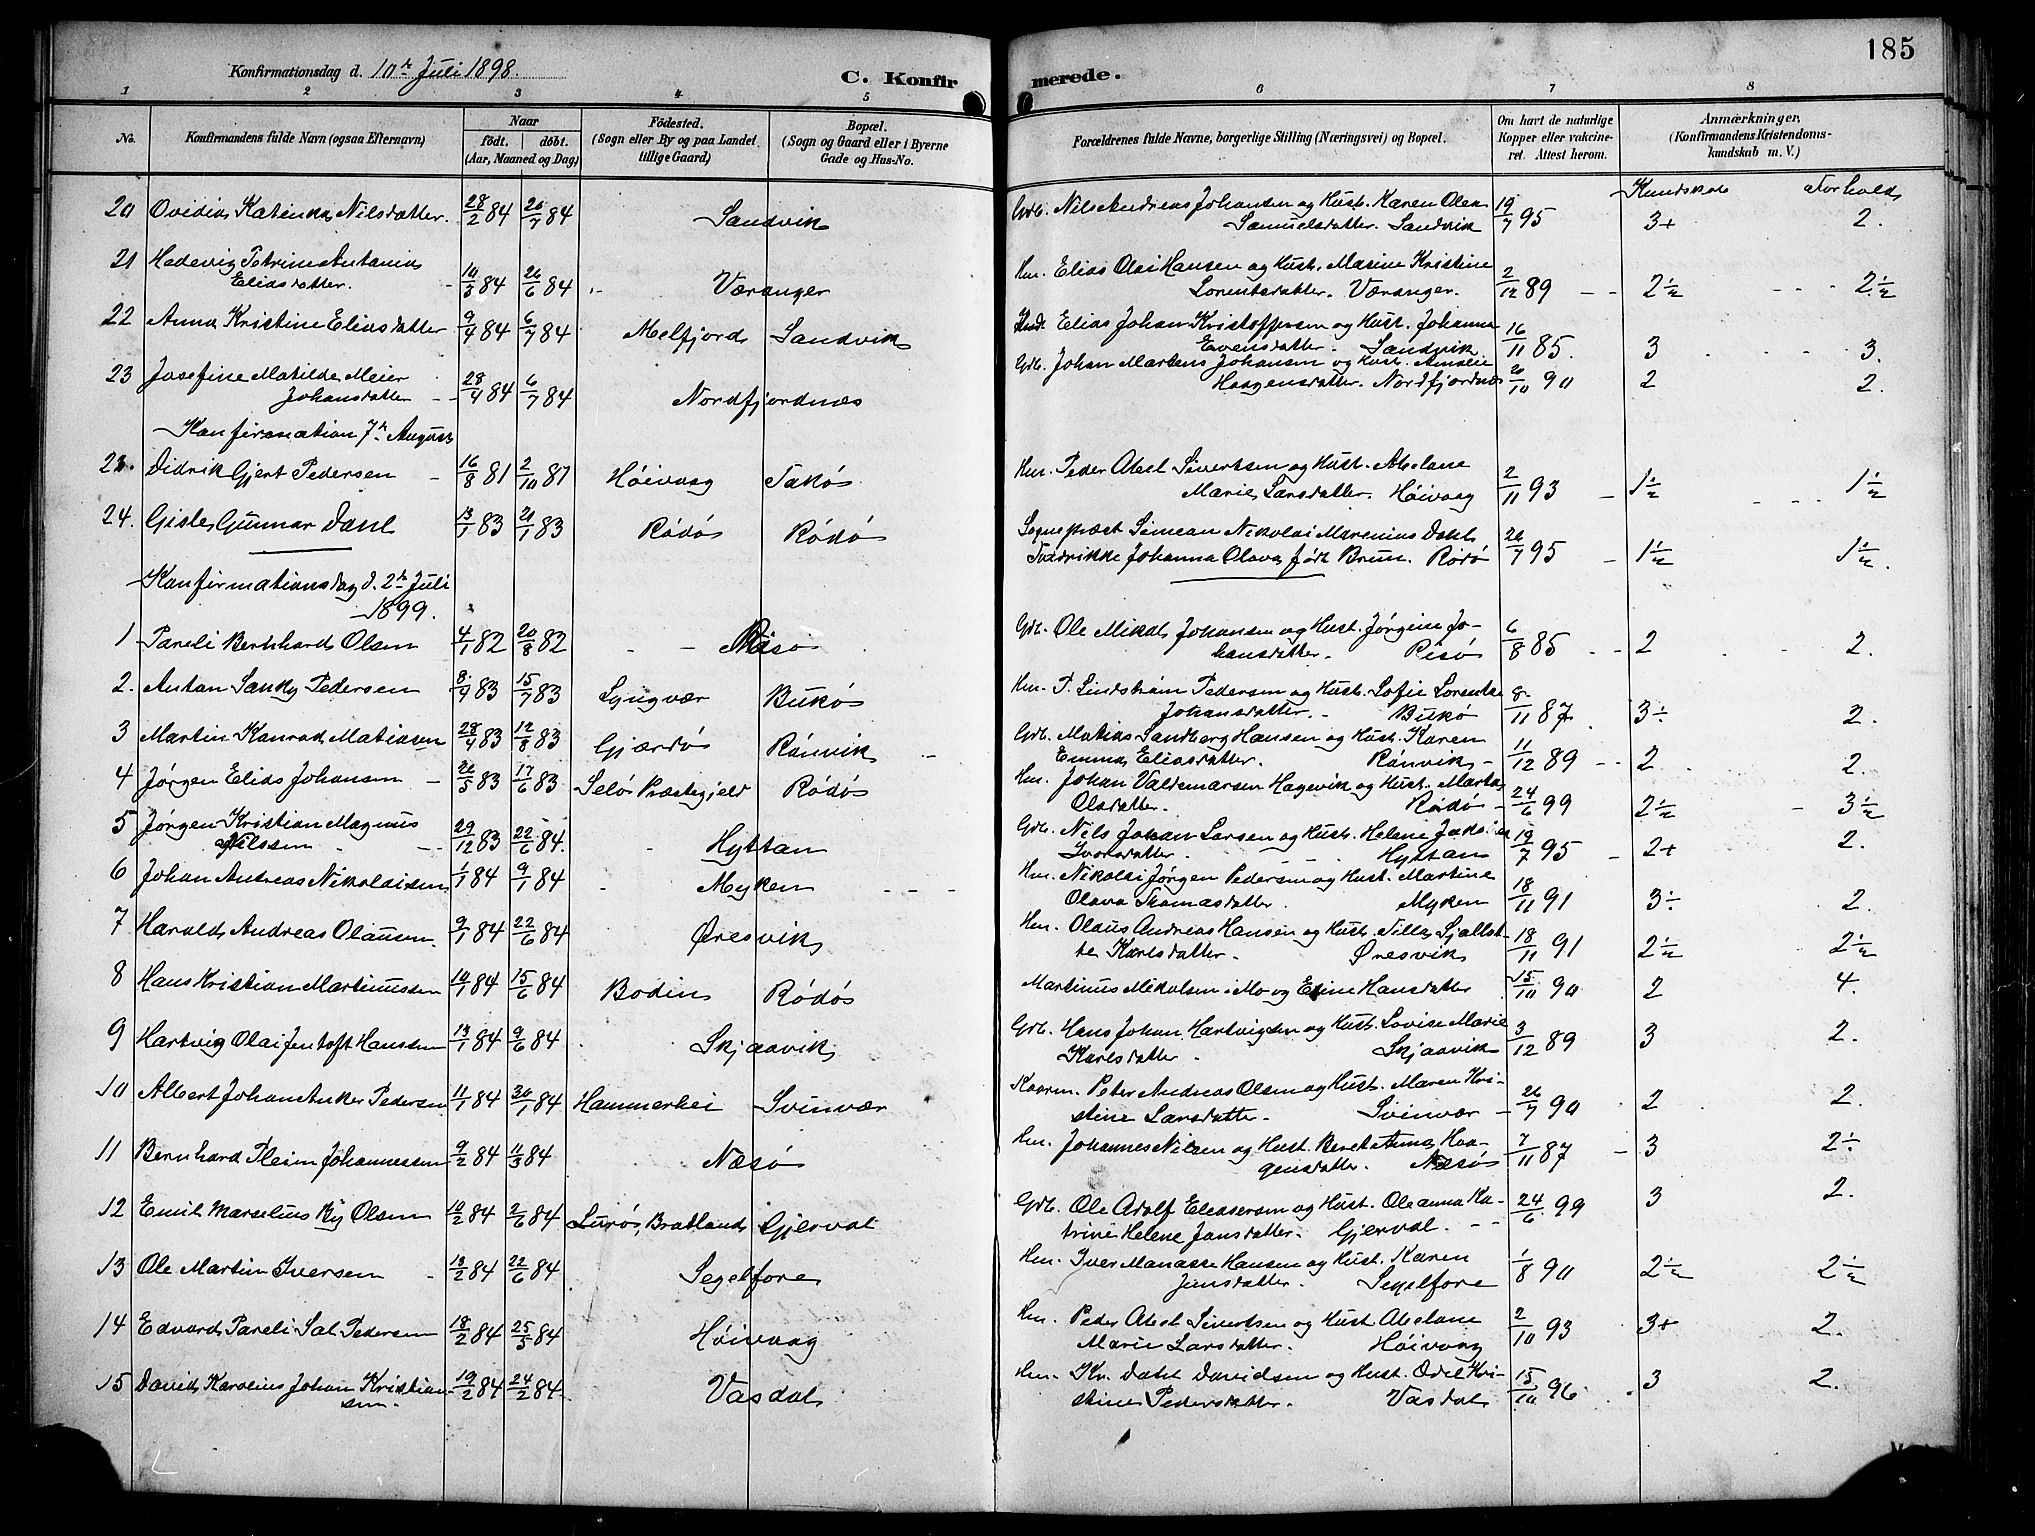 185
Konfirmationsdag d. 10de Juli 1898.
C. Konfirmerede.
1 2 3 4 5 6 7 8
No. Konfirmandens fulde Navn (ogsaa Efternavn) Naar født. døbt. (Aar, Maaned og Dag) Fødested. (Sogn eller By og paa Landet tillige Gaard) Bopæl. (Sogn og Gaard eller i Byerne Gade og Hus-No. Forældrenes fulde Navne, borgerlige Stilling (Næringsvei) og Bopæl. Om havt de naturlige Kopper eller vaccineret. Attest herom. Anmærkninger, (Konfirmandens Kristendomskundskab m. V.)
Kundskab Forhold
20 Ovidia Katinka Nilsdatter 28/2 84 20/7 84 Sandvik Gdb. Nils Andreas Johansen og Hust. Karen Olea 19/7 95 3+ 2.
Samuelsdatter. Sandvik
21 Hedevig Petrine Antonia Hm. Elias Olai Hansen og Hust. Masine Kristine
Eliasdatter. 10/3 84 26/6 84 Væranger Lorentsdatter. Væranger. 2/12 89 2½ 2½
22 Anna Kristine Eliasdatter 9/4 84 6/7 84 Melfjord Sandvik Elias Johan Kristoffersen og Hust. Johanna 16/11 85. 3 3.
Evensdatter. Sandvik
23 Josefine Matilde Meier Gdb. Johan Martens Johansen og Hust. Amalie
Johansdatter 28/4 84 6/7 84 Nordfjordnæs Haagensdatter. Nordfjordnæs 20/10 90 2 2.
Konfirmation 7de August
23. Didrik Gjert Pedersen 16/8 81 2/10 81 Høivaag Selsøs Hm. Peder Abel Sivertsen og Hust. Abelane 2/11 93 1½ 1½
Marie Larsdatter. Høivaag
24. Gisle Gunnar Dahl 13/1 83 21/1 83 Rødø Rødø Sogneprest Simean Nikolai Marenius Dahl 26/7 95 1½ 1½.
Fredrikke Johanna Olava født Brun. Rødø
Konfirmationsdag d. 2de Juli
1899.
1 Pareli Bernhard Olsen 4/1 82 20/8 82 Risø Gdb. Ole Mikal Johansen og Hust. Jørgine Jo- 6/8 85 2 2.
hansdatter. Risø
2. Anton Sanky Pedersen 8/4 83 15/7 83 Lyngvær Bukø Hm. P. Lindstrøm Pedersen og Hust. Sofie Lorentse 8/11 87 3÷ 2.
Johansdatter. Bukø
3 Martin Konrad Matiasen 28/4 83 12/8 83 Gjærdø Rønvik Gdb. Matias Sandberg Hansen og Hust. Karen 11/12 89 2 2.
Emma Eliasdatter. Rønvik
4 Jørgen Elias Johansen 26/5 83 17/6 83 Selø Præstegjeld Rødø Hm. Johan Valdemarsen Hagevik og Hust. Marta 24/6 99 2½ 3½
Olsdatter. Rødø
5 Jørgen Kristian Magnus Gdb. Nils Johan Larsen og Hust. Helene
Nilssen 29/12 83 22/6 84. Hyttan Ivarsdatter. Hyttan 19/7 95 2+ 2.
6 Johan Andreas Nikolaisen 1/1 84 9/1 84 Myken Hm. Nikolai Jørgen Pedersen og Hust. Martine 18/11 91 3÷ 2.
Olava Thomasdatter. Myken
7 Harald Andreas Olausen. 9/1 84 22/6 84 Øresvik Hm. Olaus Andreas Hansen og Hust. Silla Sjallot- 18/11 91 2½ 2½
te Karlsdatter. Øresvik
8 Hans Kristian Martinussen 10/1 84 15/6 84 Bodin Rødø Martinus Mikalsen i Mo og Eline Hansdatter 15/10 90 2 4.
9 Hartvig Olai Jentoft Hanssen 13/1 84 9/6 84 Skjaavik Gdb. Hans Johan Hartvigsen og Hust. Lovise Marie 3/12 89 3 2.
Karlsdatter. Skjaavik
10 Albert Johan Anker Pedersen 11/1 84 30/1 84 Hammerhei Svinvær Kaarm. Peter Andreas Olsen og Hust. Maren Kri- 26/7 90 2 2.
stine Larsdatter. Svinvær
11 Bernhard Pleim Johannessen 9/2 84 11/3 84 Næsø Hm. Johannes Nilsen og Hust. Beret Anna Haa- 7/11 87 3 2÷
gensdatter. Næsø
12 Emil Marselius By Olsen 10/2 84 2/6 84 Lurø, Bratland Gjerval Gdb. Ole Adolf Eleasersen og Hust. Oleanna Ka- 24/6 99 3 2.
trine Helene Jansdatter. Gjerval.
13 Ole Martin Iversen 13/2 84 22/6 84 Segelfore Hm. Iver Manasse Hansen og Hust. Karen 1/8 90 2½ 2½
Jensdatter. Segelfore
14 Edvard Pareli Sal Pedersen 18/2 84 25/5 84 Høivaag Hm. Peder Abel Sivertsen og Hust. Abelane 2/10 93 3+ 2.
Marie Larsdatter. Høivaag
15 David Karolius Johan Kristian- 19/2 84 24/2 84 Vasdal Hm. Kr. Dahl Davidsen og Hust. Odel Kri- 15/10 96. 3 2.
sen. stine Pedersdatter. Vasdal